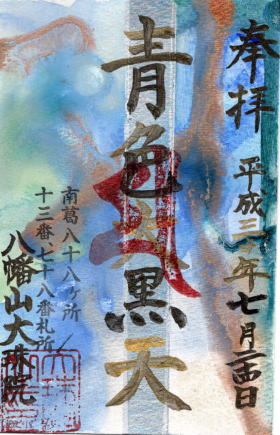 奉拝
平成三一年七月二十四日
青色大黒天
南葛八十八ヶ所
十三番、七十八番札所
八幡山大珠院